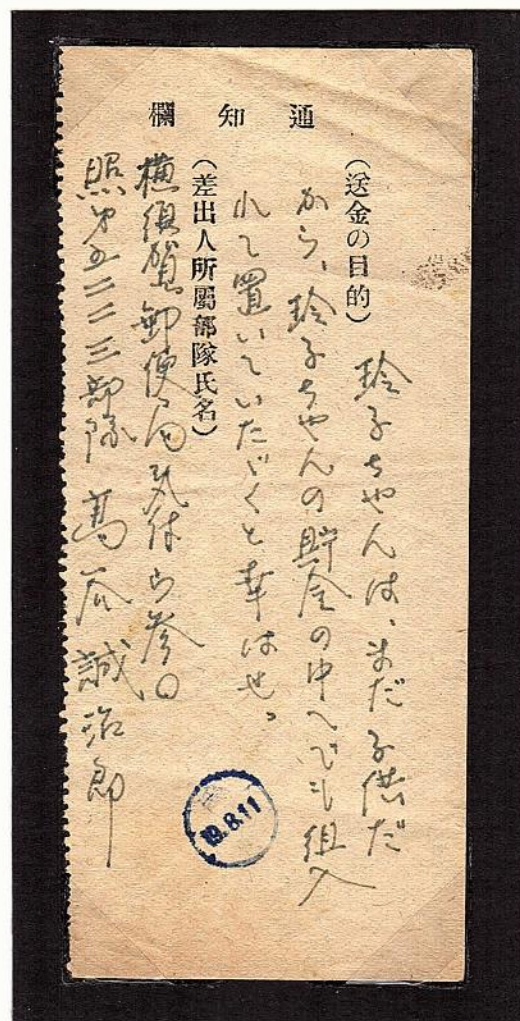 通知欄
(送金の目的)
玲子ちやんは、まだ子供だ
から、玲子ちやんの貯金の中へでも組入
れて置いていたゞくと幸はせ。
(差出人所屬部隊氏名)
横須賀郵便局気付
照第五二二三部隊 髙 誠治郎
19.8.11